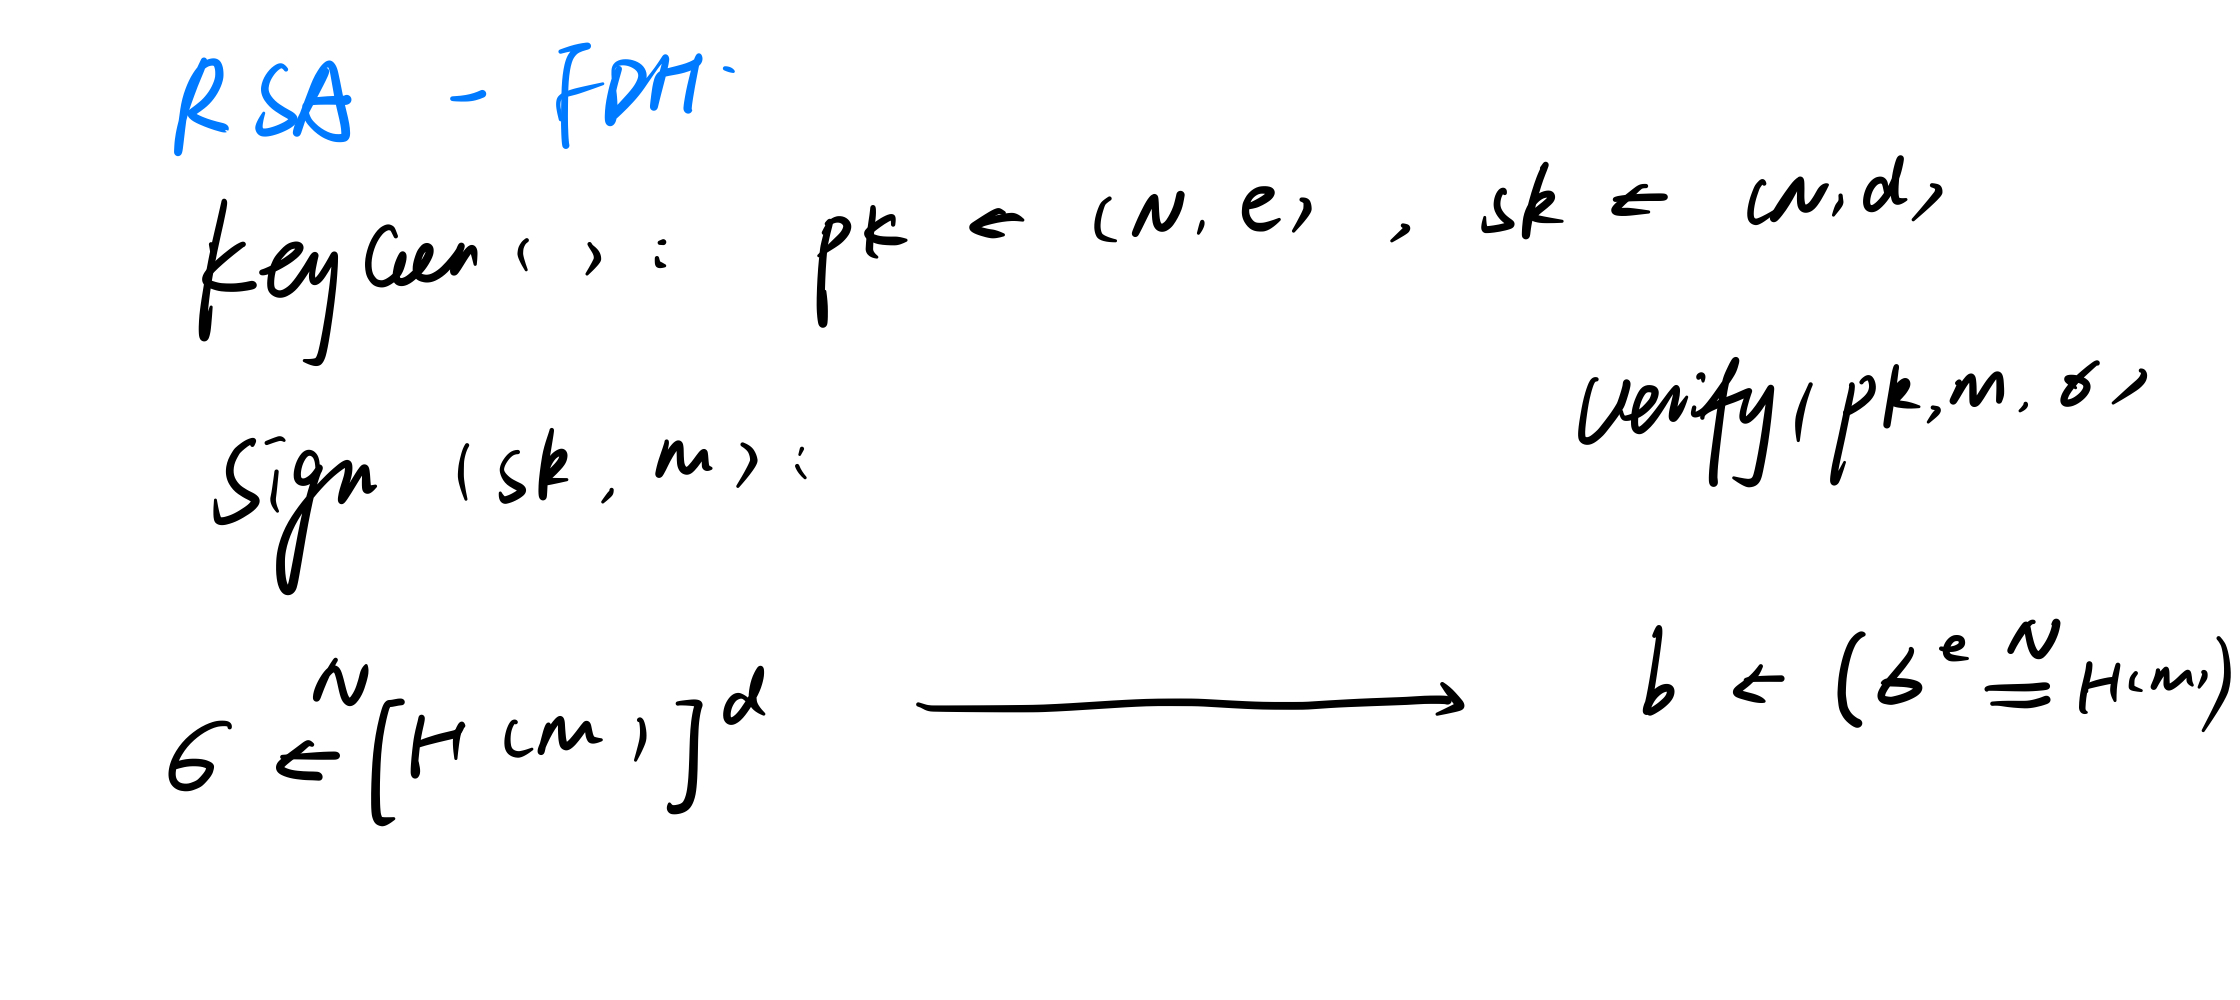 RSA - FDH.
KeyGen(): pk ← (N, e), sk ← (N, d)
Sign (sk, m):
Verify(pk, m, σ)
σ ←ᴺ [H(m)]ᵈ ⟶ b ← (σᵉ ≡ᴺ H(m))